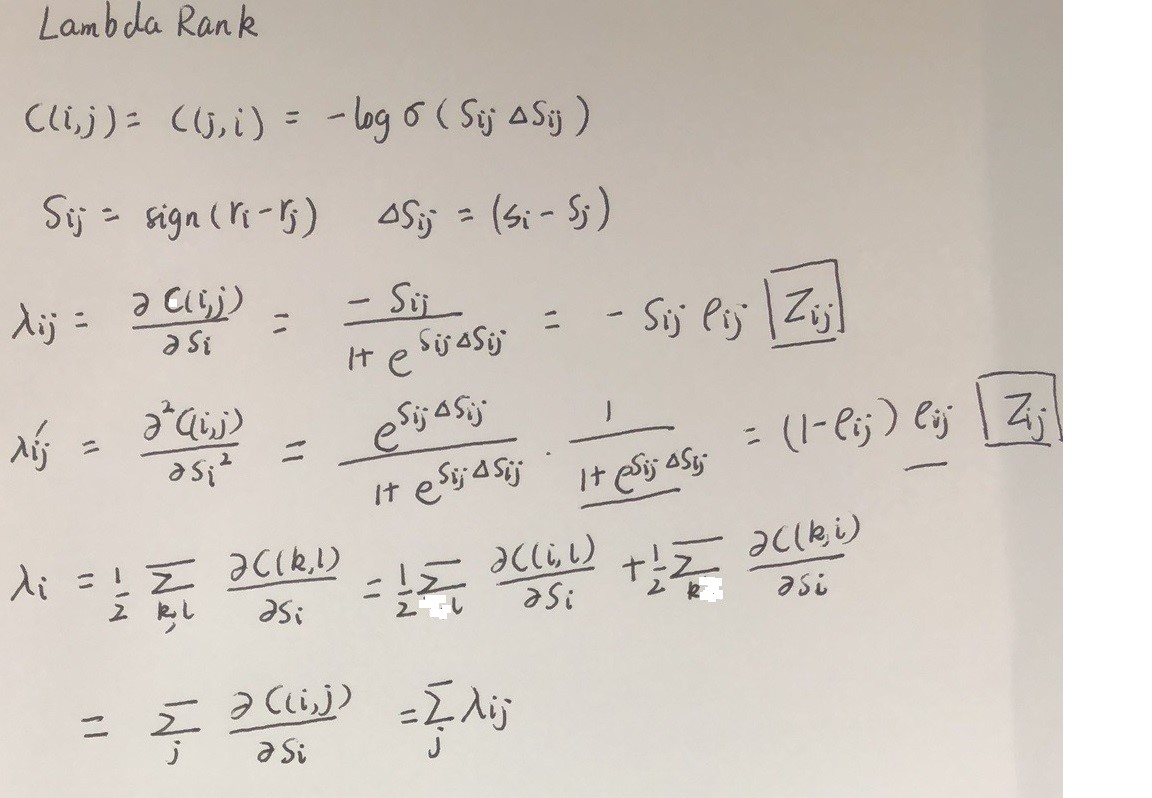 Lambda Rank
C(i,j) = C(j,i) = -log σ ( Sij ΔSij )
Sij = sign(ri-rj)   ΔSij = (si - sj)
λij = ∂C(i,j)/∂si = -Sij/(1+e^(Sij ΔSij)) = - Sij ρij Zij
λ′ij = ∂²C(i,j)/∂si² = e^(Sij ΔSij)/(1+e^(Sij ΔSij)) · 1/(1+e^(Sij ΔSij)) = (1-ρij) ρij Zij
λi = 1/2 Σk,l ∂C(k,l)/∂si = 1/2 Σl ∂C(i,l)/∂si + 1/2 Σk ∂C(k,i)/∂si
= Σj ∂C(i,j)/∂si = Σj λij